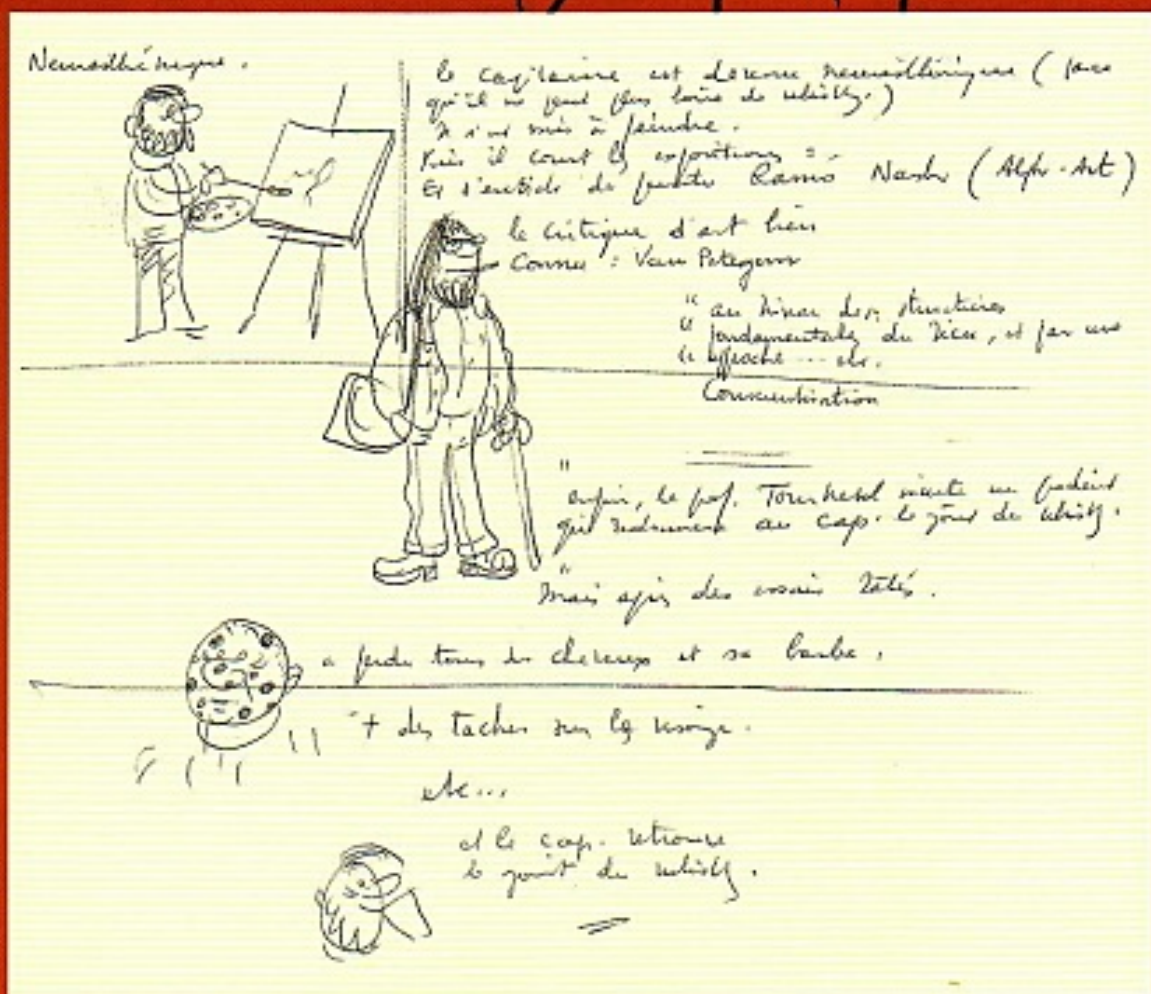 Neurasthénique.
le capitaine est devenu neurasthénique (parce
qu'il ne peut plus boire de whisky.)
Il s'est mis à peindre.
Puis il court les expositions
Et s'entiche du peintre Ramo Nash (Alph-Art)
le critique d'art bien
connu : Van Petegem
" au niveau des structures
" fondamentales du lieu, et par une
" approche ... etc.
Concentration
"
enfin, le prof. Tournesol invente un
qui au cap. le goût du whisky.
"
Mais après des essais ratés.
a perdu tous les cheveux et sa barbe.
+ des taches sur le visage.
etc...
et le cap. retrouve
le goût du whisky.